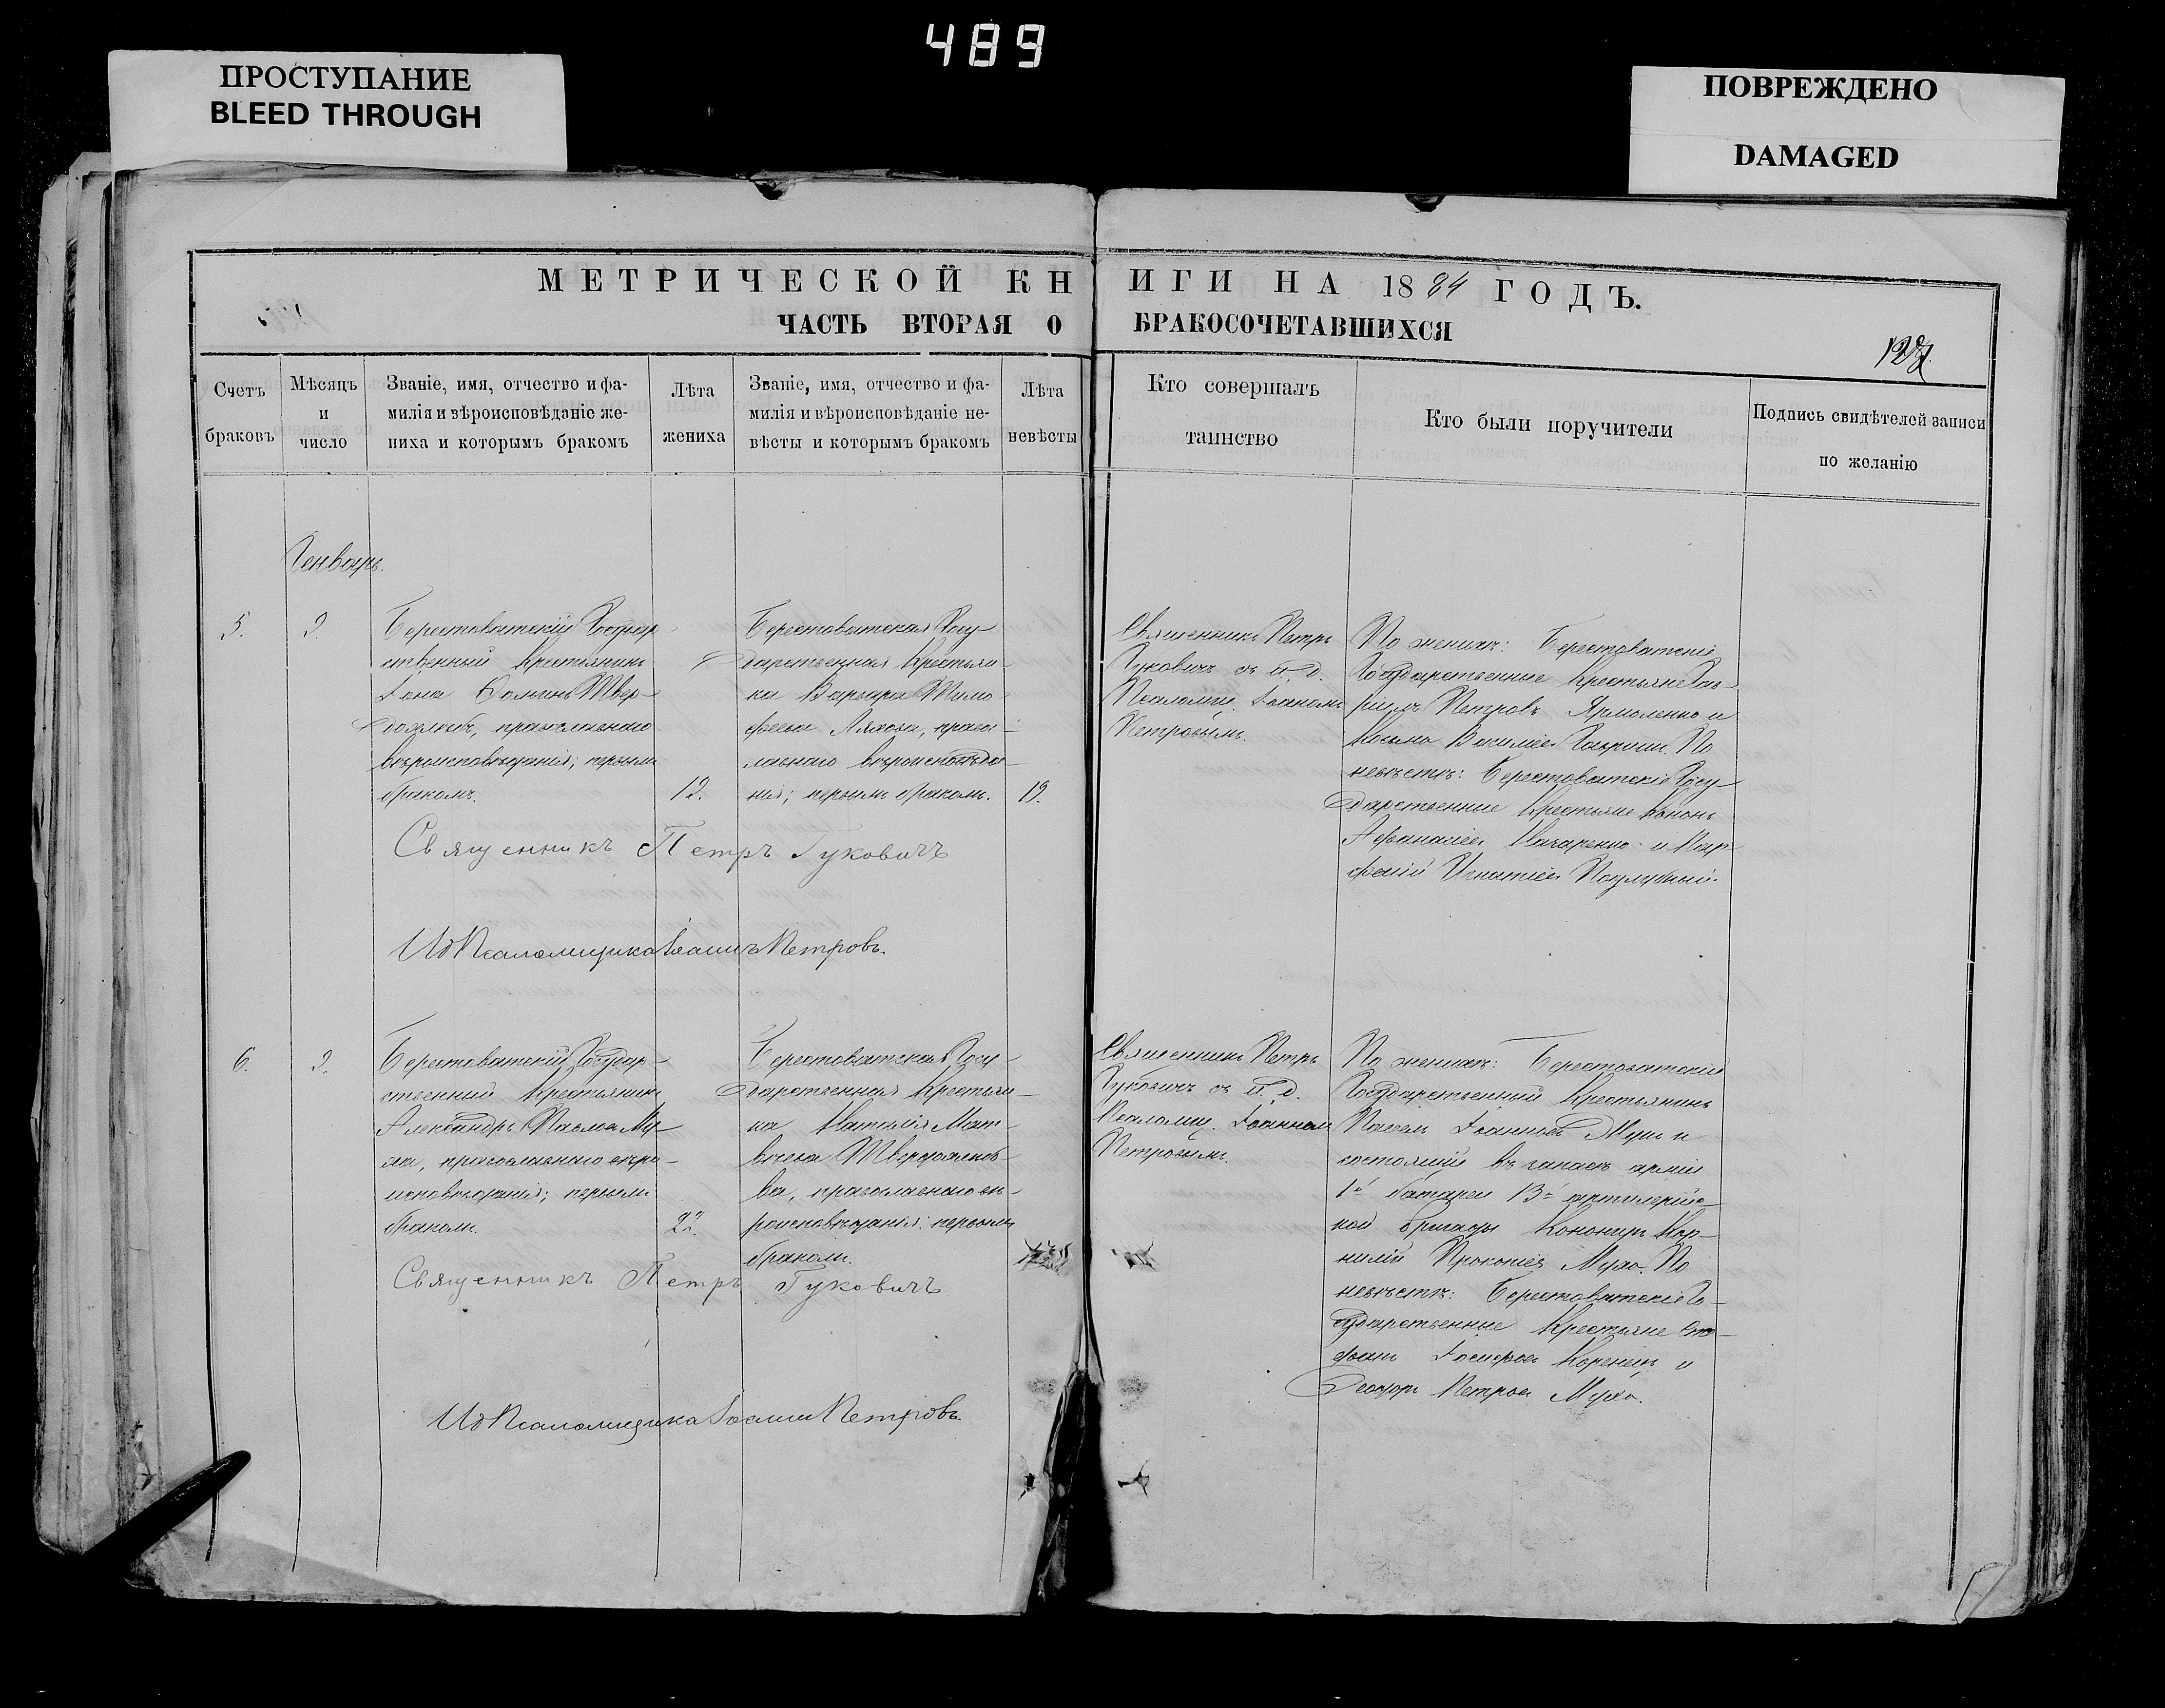 489
ПРОСТУПАНИЕ
BLEED THROUGH
ПОВРЕЖДЕНО
DAMAGED
МЕТРИЧЕСКОЙ КНИГИ НА 1884 ГОДЪ.
ЧАСТЬ ВТОРАЯ О БРАКОСОЧЕТАВШИХСЯ
Счетъ
браковъ
Мѣсяцъ
и
число
Званіе, имя, отчество и фа-
милія и вѣроисповѣданіе же-
ниха и которымъ бракомъ
Лѣта
жениха
Званіе, имя, отчество и фа-
милія и вѣроисповѣданіе не-
вѣсты и которымъ бракомъ
Лѣта
невѣсты
Кто совершалъ
таинство
Кто были поручители
Подпись свидѣтелей записи
по желанію
Генварь.
5.
Берестоватскій Государ
ственный Крестьянинъ
православнаго
вѣроисповѣданія; первымъ
бракомъ.
Берестоватская Госу-
дарственная Крестьян-
ка Варвара Тимо-
феева Ляхова, право-
славнаго вѣроисповѣда-
нія; первымъ бракомъ.
19.
Священникъ Петръ
Гуковичъ съ и. д.
Псаломщ. Іоанномъ
Петровымъ.
По женихѣ: Берестоватскіе
Государственные Крестьяне Гав-
ріилъ Петровъ Ярмоленко и
Косьма Василіевъ По
невѣстѣ: Берестоватскіе Госу-
дарственные Крестьяне Кононъ
Афанасіевъ и Пар-
феній Игнатіевъ
Священникъ Петръ Гуковичъ
И д Псаломщика Іоаннъ Петровъ.
6.
Берестоватскій Государ-
ственный Крестьянинъ
Александръ Павловъ Му-
ха, православнаго вѣро-
исповѣданія; первымъ
бракомъ.
22.
Берестоватская Госу-
дарственная Крестьян-
ка Наталія Мат-
вѣева Твердохлѣбо-
ва, православнаго вѣ-
роисповѣданія; первымъ
бракомъ.
Священникъ Петръ
Гуковичъ съ и. д.
Псаломщ. Іоанномъ
Петровымъ.
По женихѣ: Берестоватскіе
Государственный Крестьянинъ
Павелъ Іоанновъ и
состоящій въ запасѣ арміи
1й батареи 13й артилерійс-
кой бригады Канониръ Кор-
нилій Прокопіевъ Муха. По
невѣстѣ: Берестоватскіе Го-
сударственные Крестьяне Сте-
фанъ Іосифовъ и
Феодоръ Петровъ Муха.
Священникъ Петръ Гуковичъ
И д Псаломщика Іоаннъ Петровъ.